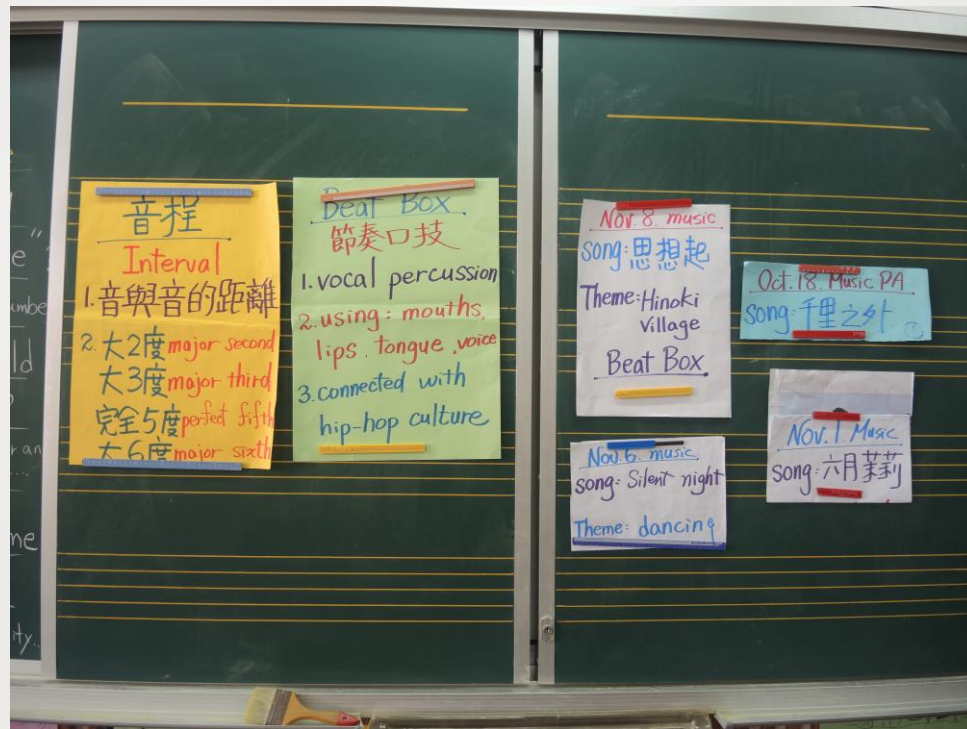 音程
Interval
1. 音與音的距離
2. 大2度 major second
大3度 major third
完全5度 perfect fifth
大6度 major sixth
Beat Box
節奏口技
1. vocal percussion
2. using: mouths,
lips, tongue, voice
3. connected with
hip-hop culture
Nov. 8. music
song: 思想起
Theme: Hinoki
village
Beat Box
Oct. 18. Music PA
song: 千里之外
Nov. 6. music
song: Silent night
Theme: dancing
Nov. 1 Music
song: 六月茉莉